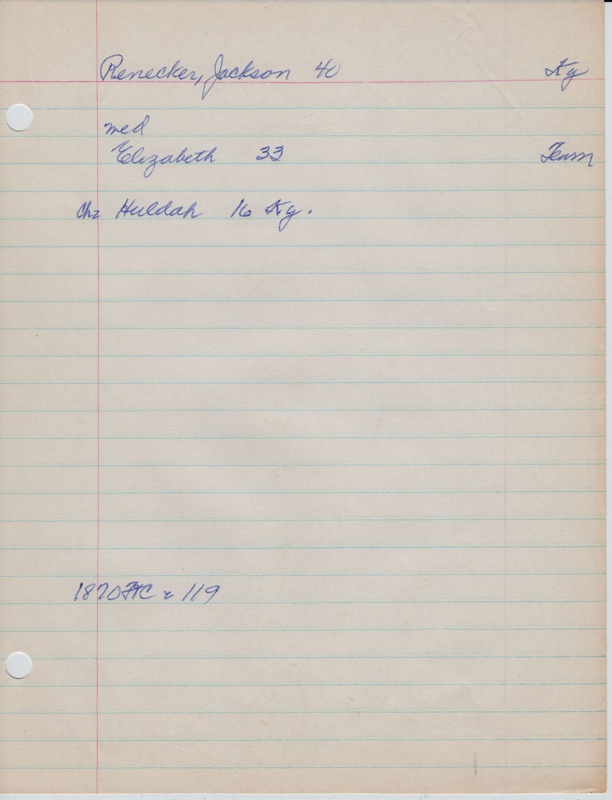 Renecker, Jackson 40 Ky
med
Elizabeth 33 Tenn
Ch: Huldah 16 Ky.
1870 119